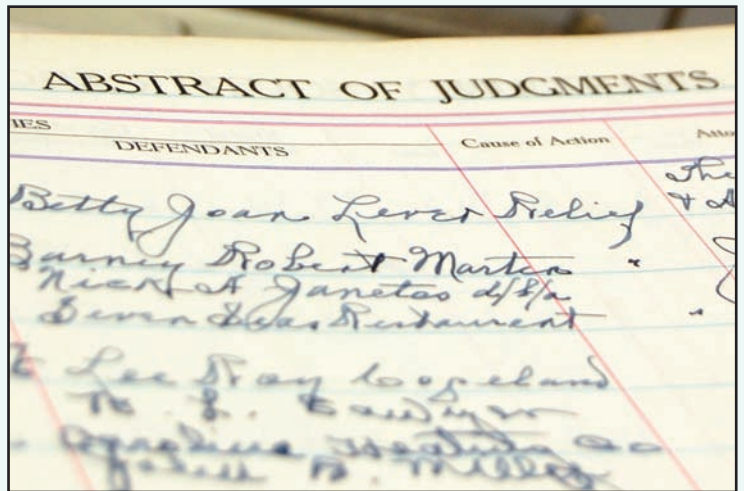 ABSTRACT OF JUDGMENTS
IES
DEFENDANTS Cause of Action Atto
The
Betty Joan Lever Relief & A
Barney Robert Martin "
Nick A Janetos d/b/a
Seven Seas Restaurant "
Lee Roy Copeland
Co
John B. Miller